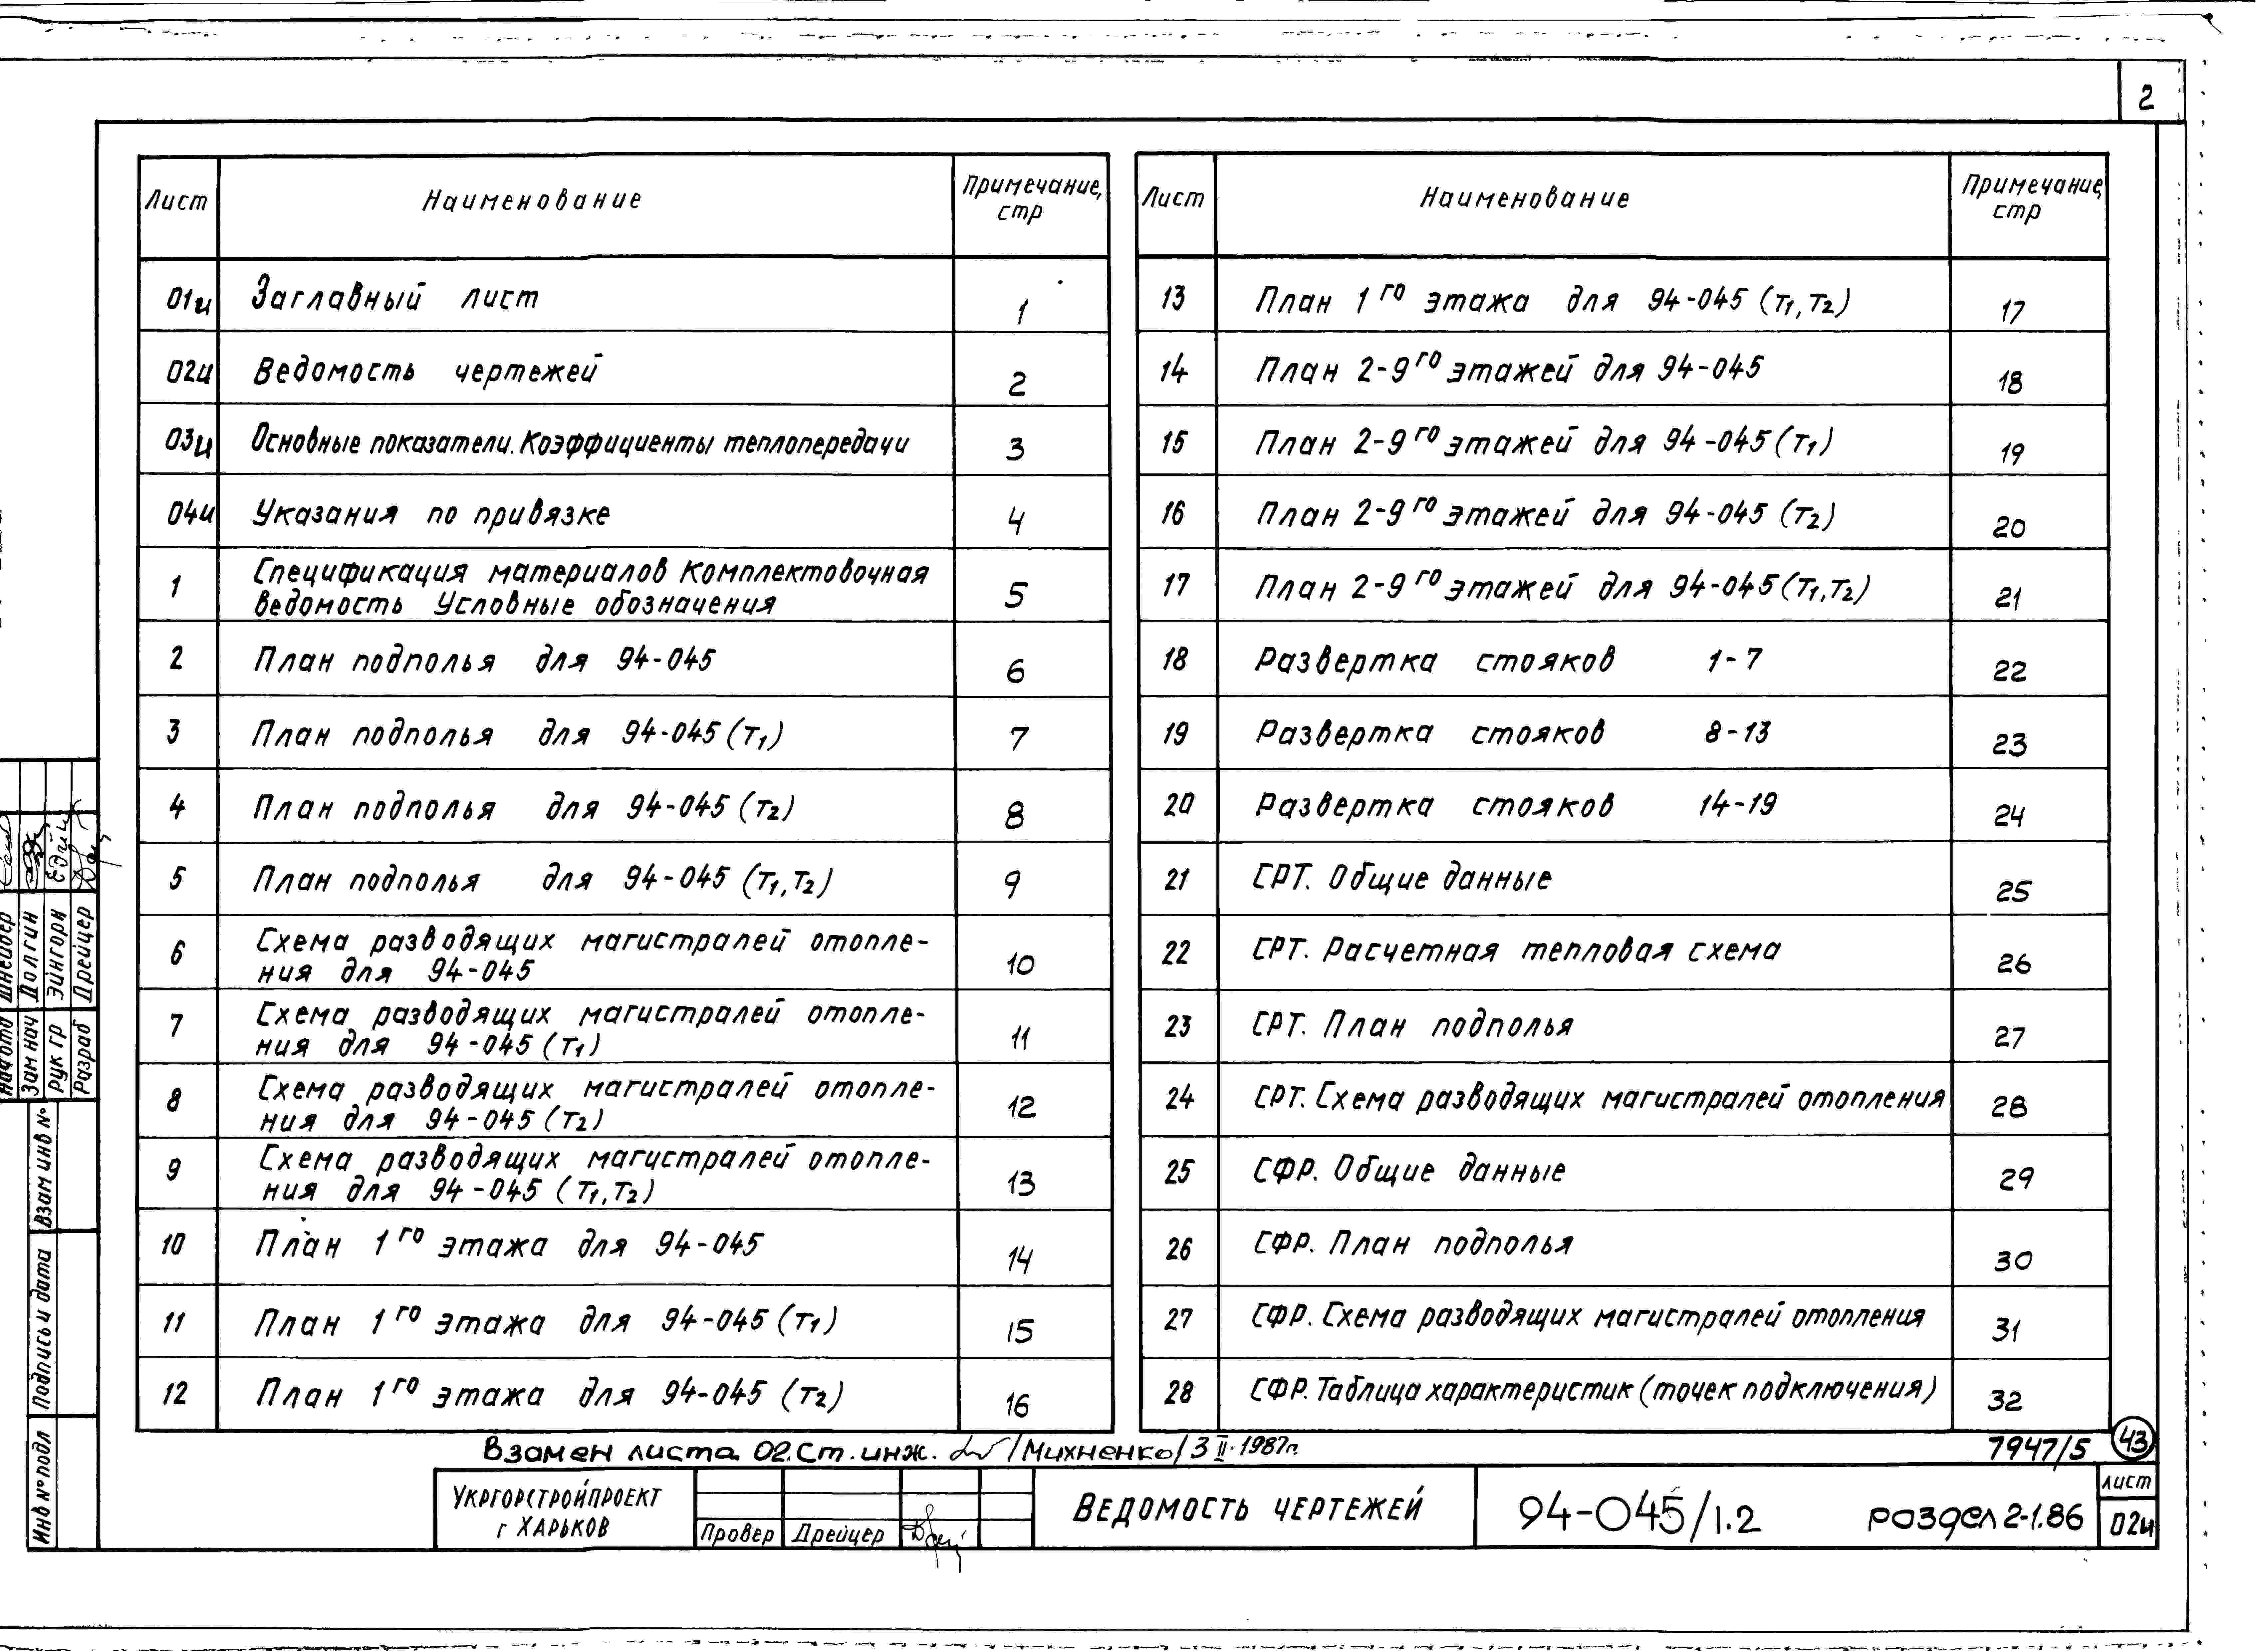 2
Лист Наименование Примечание, стр
01и Заглавный лист 1
02и Ведомость чертежей 2
03и Основные показатели. Коэффициенты теплопередачи 3
04и Указания по привязке 4
1 Спецификация материалов Комплектовочная
ведомость Условные обозначения 5
2 План подполья для 94-045 6
3 План подполья для 94-045 (Т1) 7
4 План подполья для 94-045 (Т2) 8
5 План подполья для 94-045 (Т1,Т2) 9
6 Схема разводящих магистралей отопле-
ния для 94-045 10
7 Схема разводящих магистралей отопле-
ния для 94-045 (Т1) 11
8 Схема разводящих магистралей отопле-
ния для 94-045 (Т2) 12
9 Схема разводящих магистралей отопле-
ния для 94-045 (Т1,Т2) 13
10 План 1го этажа для 94-045 14
11 План 1го этажа для 94-045 (Т1) 15
12 План 1го этажа для 94-045 (Т2) 16
Лист Наименование Примечание, стр
13 План 1го этажа для 94-045 (Т1,Т2) 17
14 План 2-9го этажей для 94-045 18
15 План 2-9го этажей для 94-045 (Т1) 19
16 План 2-9го этажей для 94-045 (Т2) 20
17 План 2-9го этажей для 94-045 (Т1,Т2) 21
18 Развертка стояков 1-7 22
19 Развертка стояков 8-13 23
20 Развертка стояков 14-19 24
21 СРТ. Общие данные 25
22 СРТ. Расчетная тепловая схема 26
23 СРТ. План подполья 27
24 СРТ. Схема разводящих магистралей отопления 28
25 СФР. Общие данные 29
26 СФР. План подполья 30
27 СФР. Схема разводящих магистралей отопления 31
28 СФР. Таблица характеристик (точек подключения) 32
Взамен листа 02. Ст. инж. /Михненко/ 3 II. 1987г.
7947/5 43
Укргорстройпроект
г Харьков
Провер Дрейцер
Ведомость чертежей
94-045/1.2 раздел 2-1.86
лист
02и
Шнейдер
Зам нач Долгин
Рук гр Эйнгорн
Разраб Дрейцер
Взам инв №
Подпись и дата
Инв № подл